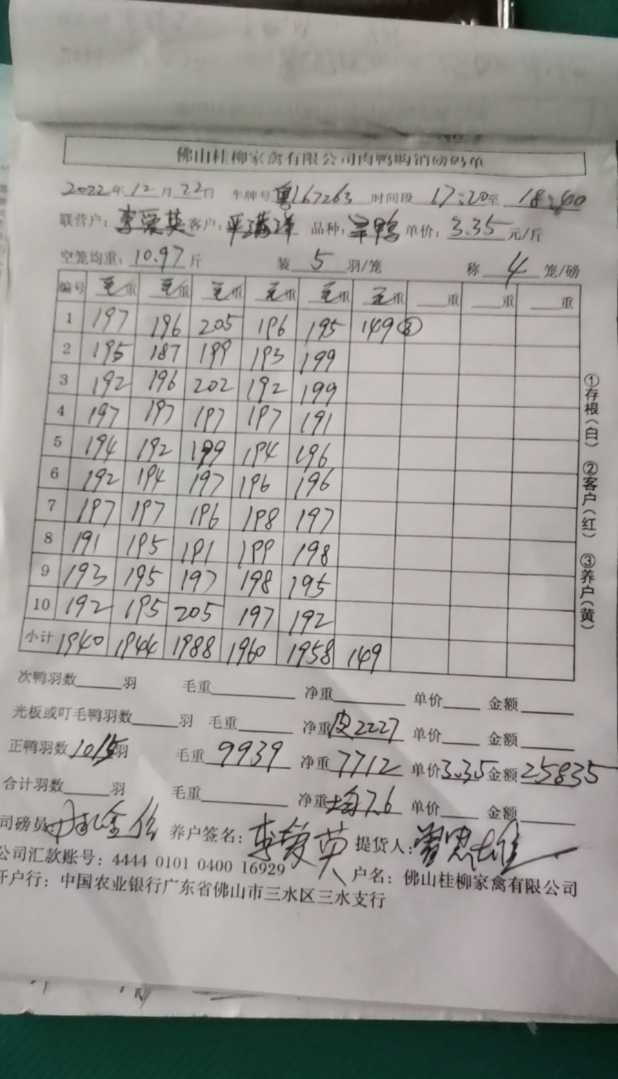 佛山桂柳家禽有限公司肉鸭购销磅码单
2022年12月22日 车牌号粤167263 时间段 17:20至 18:00
联营户: 李爱英 客户: 品种: 鸭 单价: 3.35 元/斤
空笼均重: 10.97 斤 装 5 羽/笼 称 4 笼/磅
编号 毛重 毛重 毛重 毛重 毛重 毛重 重 重 重
1 197 196 205 196 195 149
2 195 187 199 193 199
3 192 196 202 192 199
4 197 197 197 197 191
5 194 192 199 194 196
6 192 194 197 196 196
7 197 197 196 198 197
8 191 195 191 199 198
9 193 195 197 198 195
10 192 195 205 197 192
小计 1940 1944 1988 1960 1958 149
次鸭羽数 羽 毛重 净重 单价 金额
光板或叮毛鸭羽数 羽 毛重 净重 皮2227 单价 金额
正鸭羽数 1015 羽 毛重 9939 净重 7712 单价 3.35 金额 25835
合计羽数 羽 毛重 净重 均7.6 单价 金额
司磅员 养户签名: 李爱英 提货人:
公司汇款账号: 4444 0101 0400 16929 户名: 佛山桂柳家禽有限公司
开户行: 中国农业银行广东省佛山市三水区三水支行
①存根(白) ②客户(红) ③养户(黄)